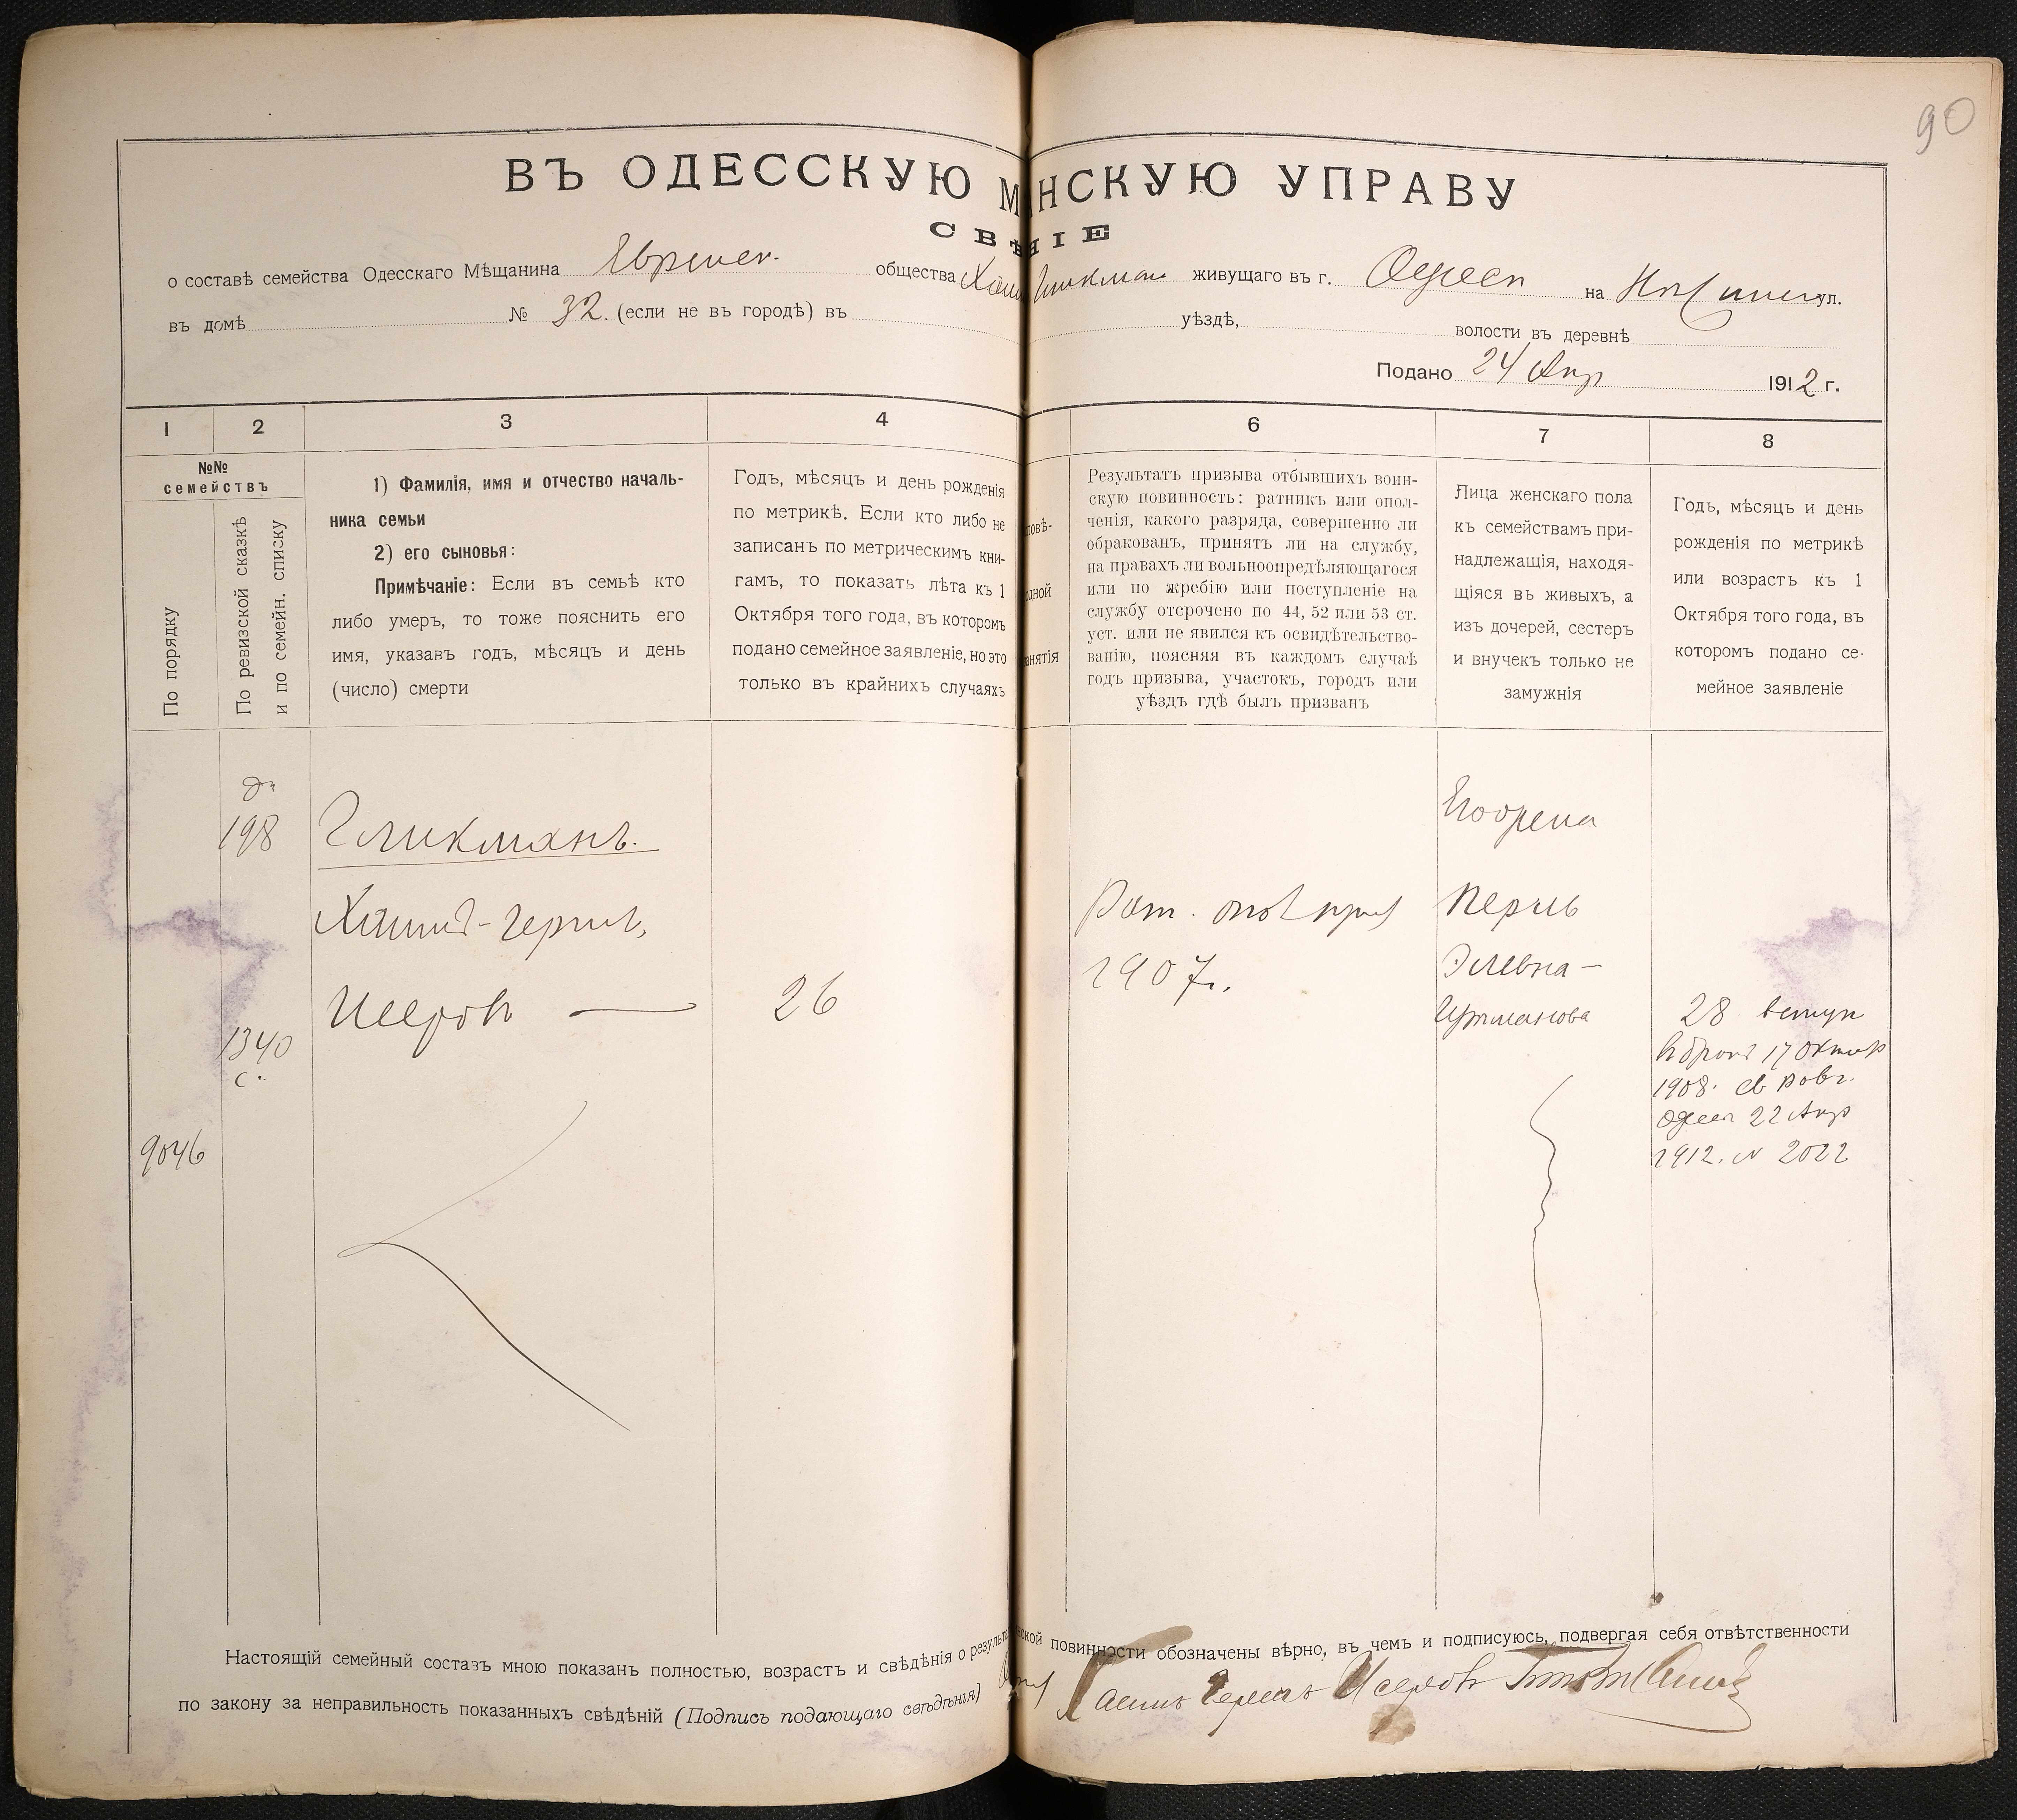 90
ВЪ ОДЕССКУЮ М НСКУЮ УПРАВУ
СВѢ НІЕ
о составѣ семейства Одесскаго Мѣщанина общества живущаго въ г. на ул.
въ домѣ № 32. (если не въ городѣ) въ уѣздѣ, волости въ деревнѣ
Подано 24 Апр 1912 г.
1 2 3 4 6 7 8
№№
семействъ
По порядку
По ревизской сказкѣ
и по семейн. списку
1) Фамилія, имя и отчество началь-
ника семьи
2) его сыновья:
Примѣчаніе: Если въ семьѣ кто
либо умеръ, то тоже пояснить его
имя, указавъ годъ, мѣсяцъ и день
(число) смерти
Годъ, мѣсяцъ и день рожденія
по метрикѣ. Если кто либо не
записанъ по метрическимъ кни-
гамъ, то показать лѣта къ 1
Октября того года, въ которомъ
подано семейное заявленіе, но это
только въ крайнихъ случаяхъ
повѣ-
дной
анятія
Результатъ призыва отбывшихъ воин-
скую повинность: ратникъ или опол-
ченія, какого разряда, совершенно ли
обракованъ, принятъ ли на службу,
на правахъ ли вольноопредѣляющагося
или по жребію или поступленіе на
службу отсрочено по 44, 52 или 53 ст.
уст. или не явился къ освидѣтельство-
ванію, поясняя въ каждомъ случаѣ
годъ призыва, участокъ, городъ или
уѣздъ гдѣ былъ призванъ
Лица женскаго пола
къ семействамъ при-
надлежащія, находя-
щіяся въ живыхъ, а
изъ дочерей, сестеръ
и внучекъ только не
замужнія
Годъ, мѣсяцъ и день
рожденія по метрикѣ
или возрастъ къ 1
Октября того года, въ
которомъ подано се-
мейное заявленіе
198
Гликманъ.
Хаимъ-Гершъ,
Исеровъ — 26
1340
с.
9046
Рат. опол
1907 г.
Перль
Элевна-
28 вступ
въ бракъ 17 Октяб
1908. св. равв.
Одесс 22 Апр
1912. N 2022
Настоящій семейный составъ мною показанъ полностью, возрастъ и свѣдѣнія о результа нской повинности обозначены вѣрно, въ чемъ и подписуюсь, подвергая себя отвѣтственности
по закону за неправильность показанныхъ свѣдѣній (Подпись подающаго свѣдѣнія) Хаимъ Гершъ Исеровъ